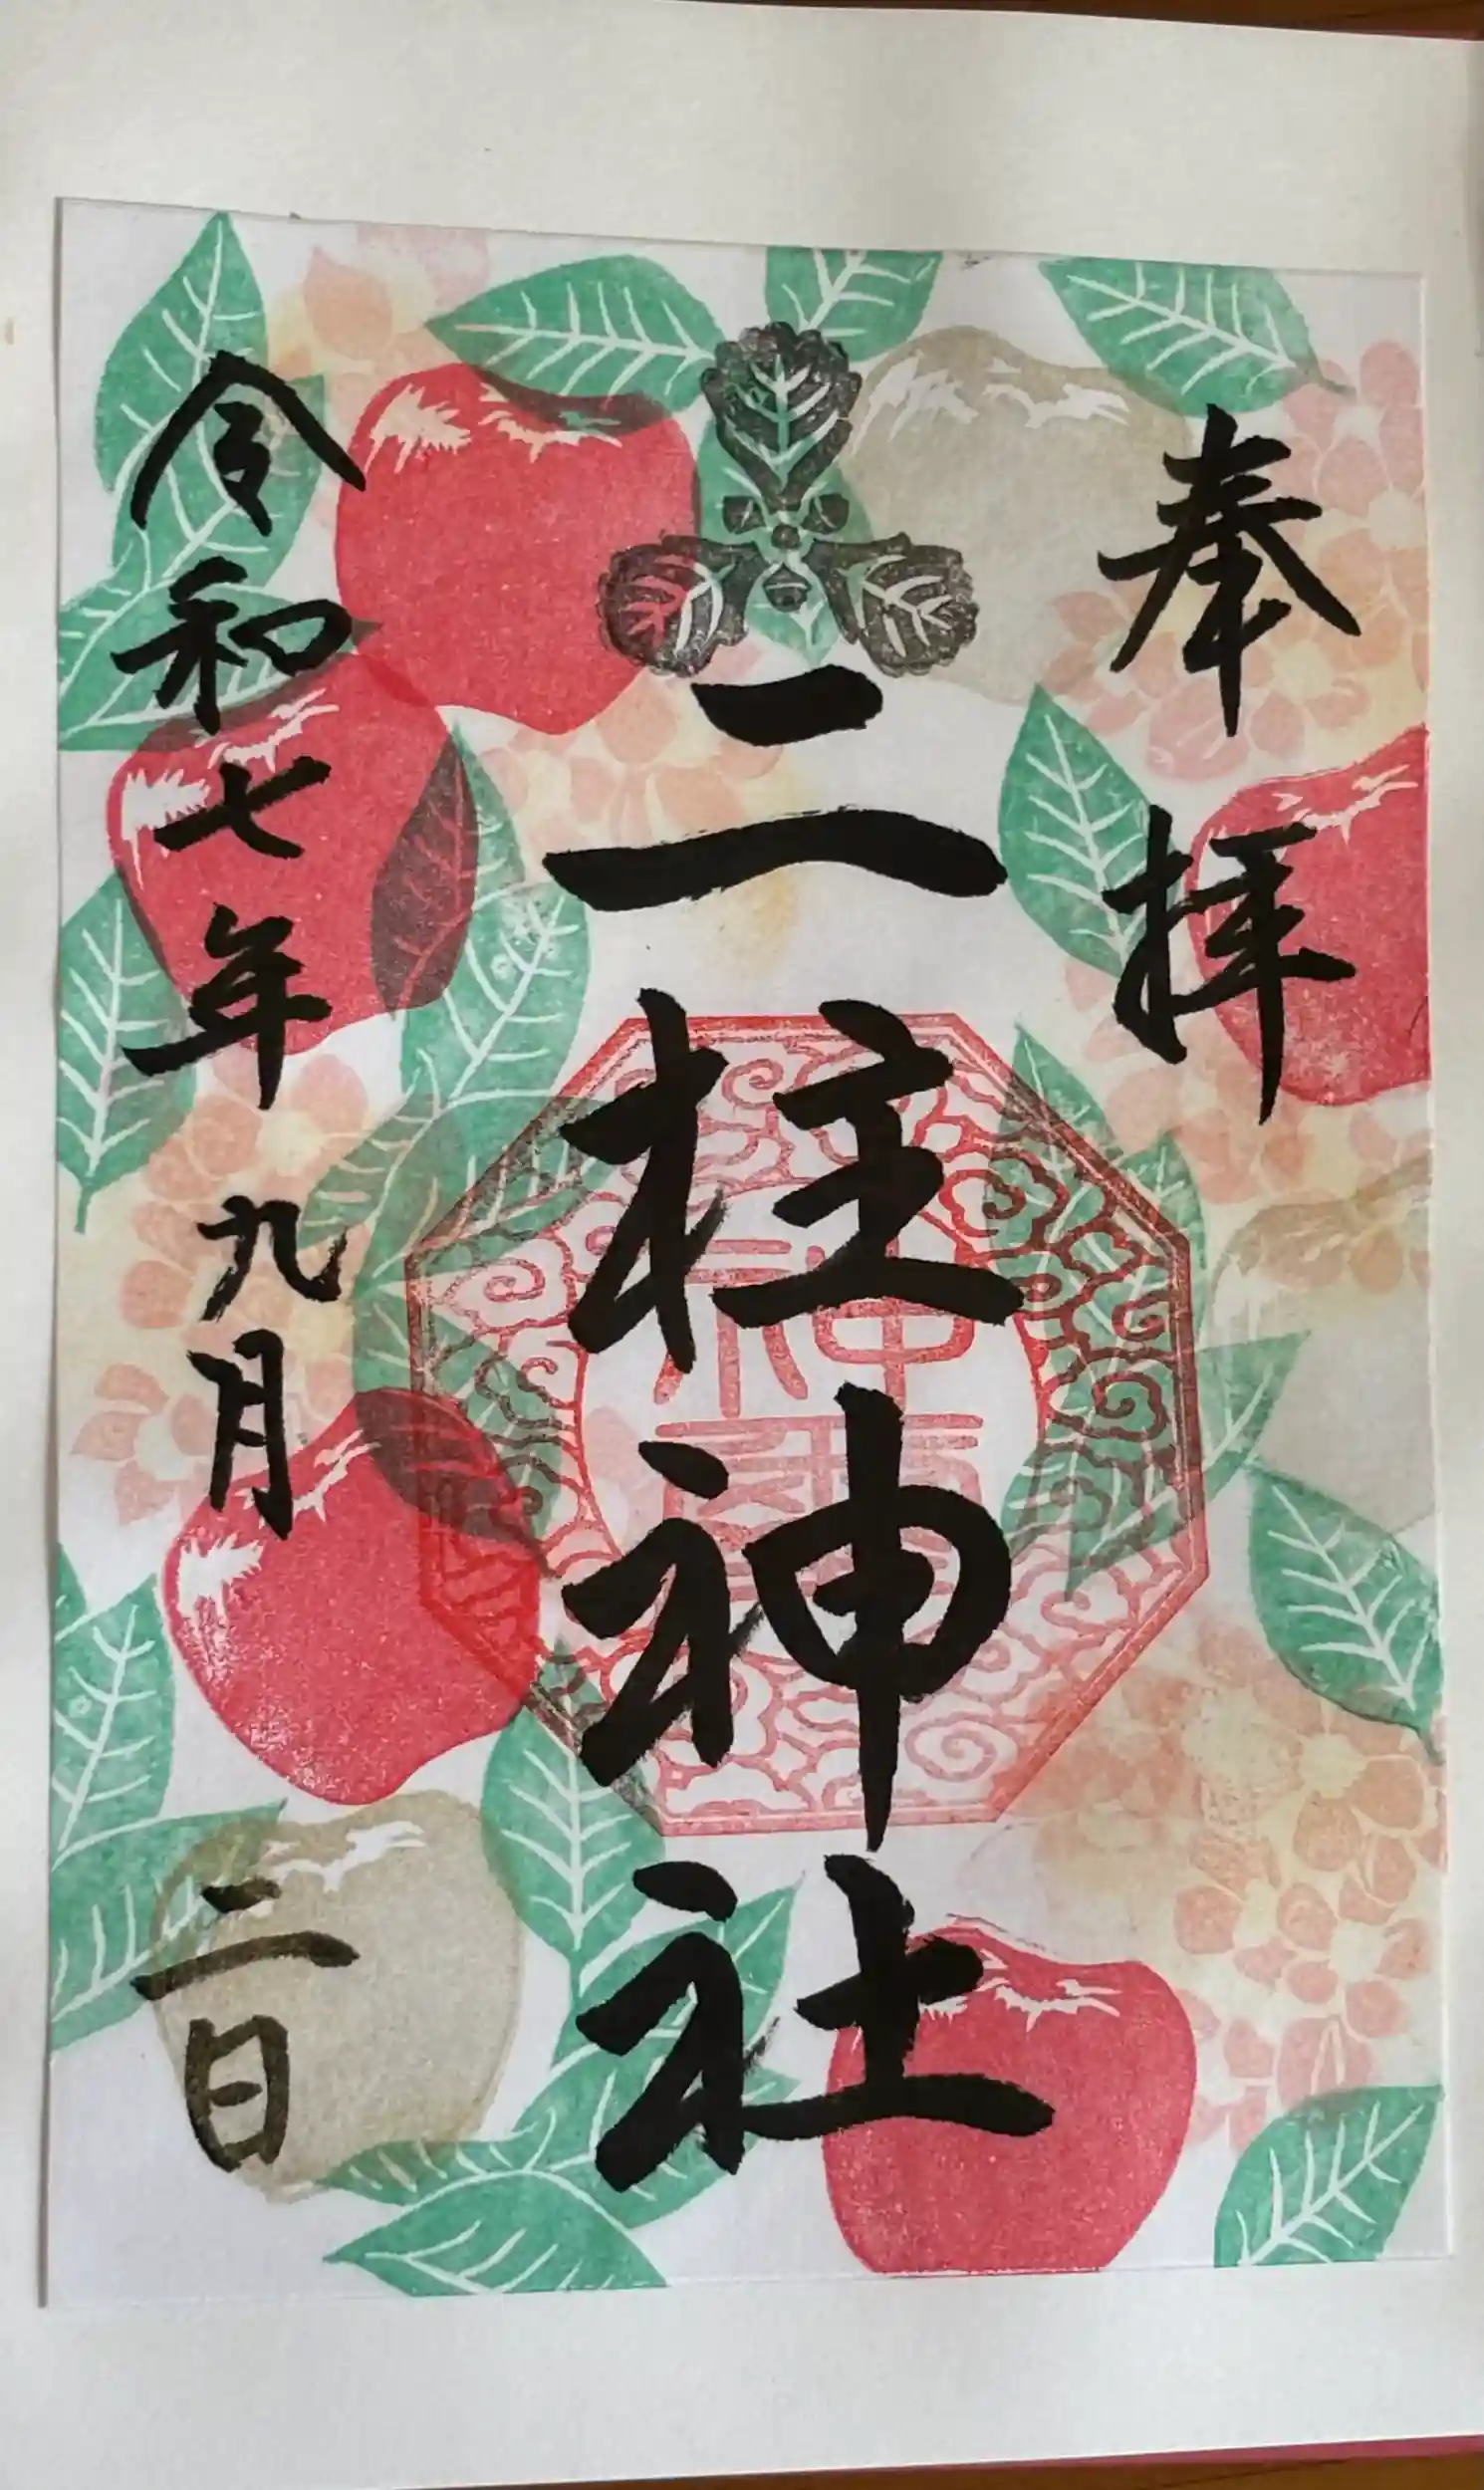 奉拝
二柱神社
令和七年九月二日